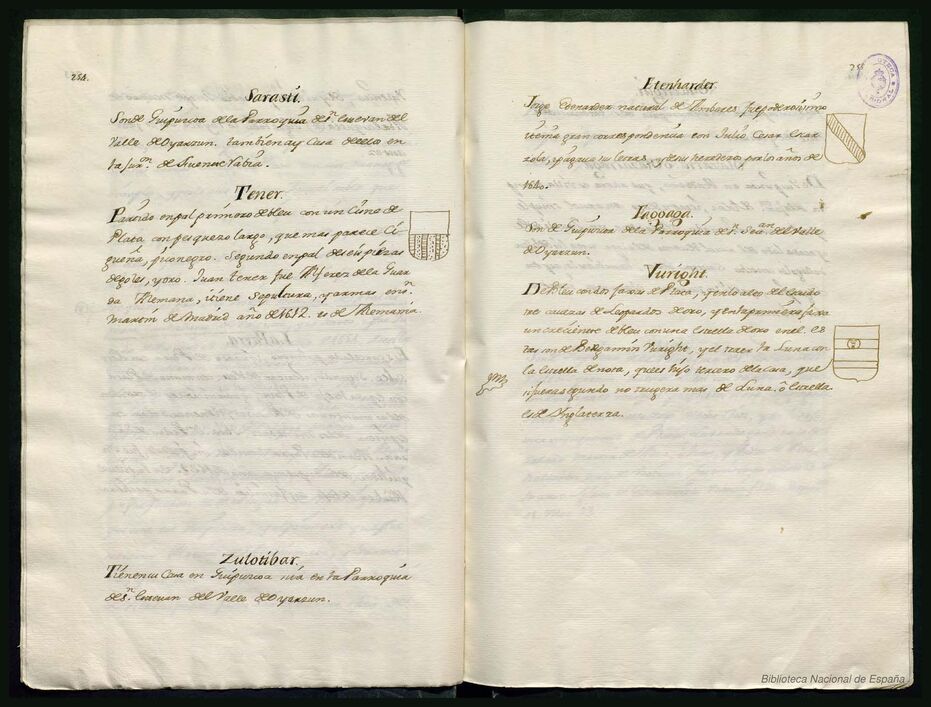 254.
Sarasti.
Son de Guipuzcoa de la Parroquia de Sn. Estevan del
Valle de Oyarzun. tambien ay Casa de ella en
la Jurn. de Fuente Rabia.
Tener.
Partido en pal primero de bleu con un Cisne de
Plata con pesquezo largo, que mas parece Ci
gueña, pico negro. Segundo en pal de seis piezas
de goles, y oro. Juan tener fue Alferez de la Guar
da Alemana, tiene Sepultura, y armas en Sn.
Martin de Madrid año de 1612. es de Alemania.
Zulotibar.
Tienen su Casa en Guipuzcoa in la Parroquia
de Sn. Estevan del Valle de Oyarzun.
25
Etenharder.
Jujo Etenarder natural de Amberes fue poderosimo
i tenia gran correspondencia con Julio Cesar Escar
zola, y pagava su letras, y de su herederos por lo años de
1640.
Lagoaga.
Son de Guipuzcoa de la Parroquia de Sn. Juan del Valle
de Oyarzun.
Vuright.
De bleu con dos faxas de Plata, y en lo alto del Escudo
tre cauezas de Leopardos de oro, y en la primera faxa
un creciente de bleu con una Estrella de oro en el. Es
tas son de Benjamin Vuright, y el traer la Luna con
la Estrella denota, que es hijo tercero de la Casa, que
si fuera segundo no trugera mas de Luna. ô Estrella
es de Inglaterra.
Biblioteca Nacional de España